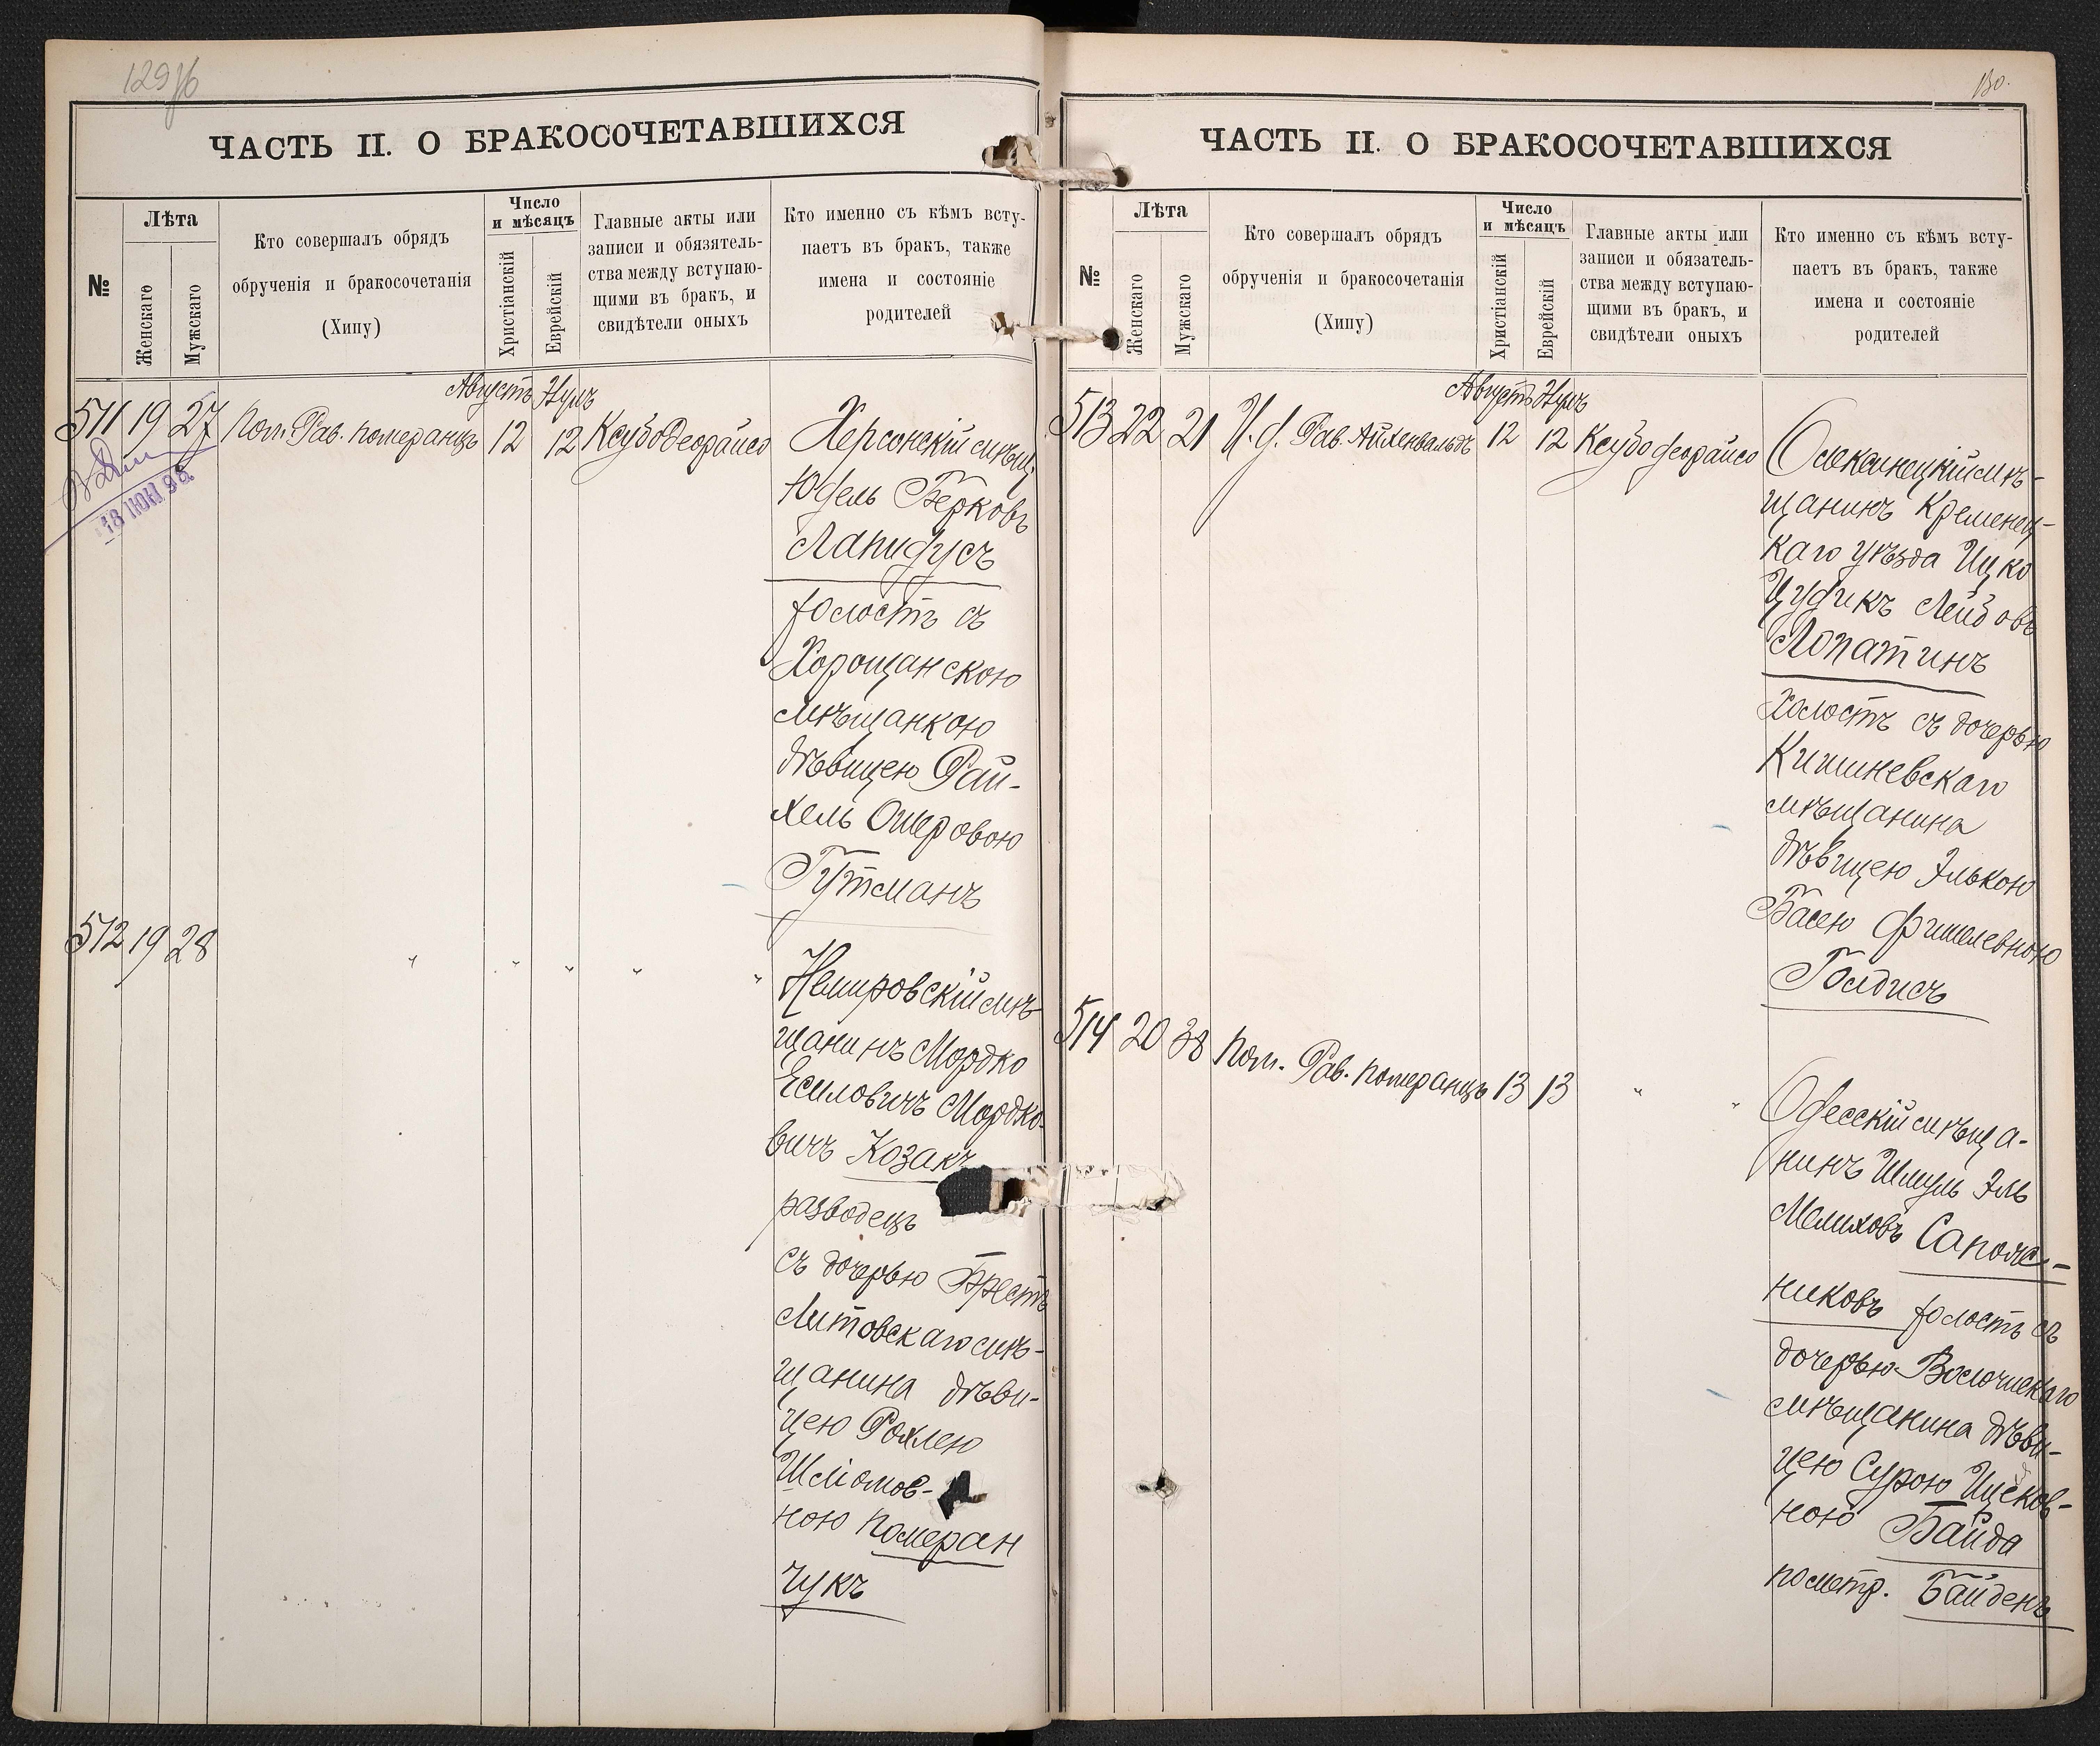 129
ЧАСТЬ II. О БРАКОСОЧЕТАВШИХСЯ
№
Лѣта
Женскаго
Мужскаго
Кто совершалъ обрядъ
обрученія и бракосочетанія
(Хипу)
Число
и мѣсяцъ
Христіанскій
Еврейскій
Главные акты или
записи и обязатель-
ства между вступаю-
щими въ бракъ, и
свидѣтели оныхъ
Кто именно съ кѣмъ всту-
паетъ въ бракъ, также
имена и состояніе
родителей
Августъ
511 19 27 Пом. Рав. Померанцъ 12 12 Ксубо деорайсо
18 ІЮН 98
Херсонскій мѣщ.
Юдель Берковъ
Лапидусъ
холостъ съ
Хорощанскою
мѣщанкою
дѣвицею Рай-
хель Ошеровою
Гутманъ
512 19 28 " " " " "
Немировскій мѣ-
щанинъ Мордко
Есиловичъ Мордко-
вичъ Козакъ
разводецъ
съ дочерью Брестъ
Литовскаго мѣ-
щанина дѣви-
цею Рохлею
Шліомов-
ною Померан
чукъ
130.
ЧАСТЬ II. О БРАКОСОЧЕТАВШИХСЯ
№
Лѣта
Женскаго
Мужскаго
Кто совершалъ обрядъ
обрученія и бракосочетанія
(Хипу)
Число
и мѣсяцъ
Христіанскій
Еврейскій
Главные акты или
записи и обязатель-
ства между вступаю-
щими въ бракъ, и
свидѣтели оныхъ
Кто именно съ кѣмъ всту-
паетъ въ бракъ, также
имена и состояніе
родителей
Августъ
513 22 21 И. д. Рав. Айхенвальдъ 12 12 Ксубо деорайсо
щанинъ Кременец-
каго уѣзда Ицко
Цудикъ Лейбовъ
Лопатинъ
холостъ съ дочерью
Кишиневскаго
мѣщанина
дѣвицею Элькою
Басею Фишелевною
Голдисъ
514 20 38 Пом. Рав. Померанцъ 13 13 " "
Одесскій мѣща-
нинъ Шмуль Эль
Мелиховъ Сапож-
никовъ холостъ съ
дочерью Волочискаго
мѣщанина дѣви-
цею Сурою Ицков-
ною Байда
по метр. Байденъ